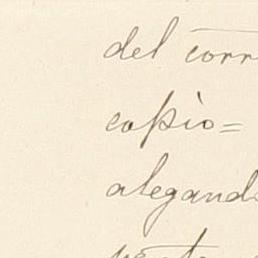 del corr
copio=
alegand